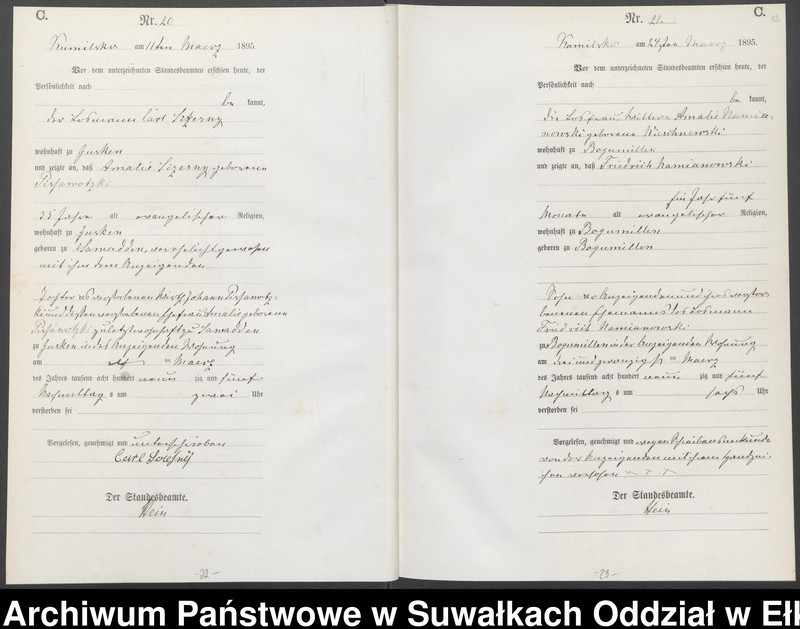 C.
Nr. 20
Kumilsko am 11ten Maerz 1895.
Vor dem unterzeichneten Standesbeamten erschien heute, der
Persönlichkeit nach
be kannt,
der Losmann Carl
wohnhaft zu Jurken
und zeigte an, daß Amalie geborene
35 Jahre alt evangelischer Religion,
wohnhaft zu Jurken
geboren zu verehelicht gewesen
mit ihm dem Anzeigenden
Tochter des verstorbenen Wirth Johann
und dessen verstorbenen Ehefrau Amalie geborene
zuletzt wohnhaft zu
zu Jurken in des Anzeigenden Wohnung
am elf ten Maerz
des Jahres tausend acht hundert neun zig und fünf
Nachmittag s um zwei Uhr
verstorben sei
Vorgelesen, genehmigt und unterschrieben
Carl
Der Standesbeamte.
Hein
-22-
C.
Nr. 21
Kumilsko am 24ten Maerz 1895.
Vor dem unterzeichneten Standesbeamten erschien heute, der
Persönlichkeit nach
be kannt,
die Losfrau, Wittwe Amalie
geborene
wohnhaft zu Bogumillen
und zeigte an, daß Friedrich Namianowski
ein Jahr fünf
Monate alt evangelischer Religion,
wohnhaft zu Bogumillen
geboren zu Bogumillen
Sohn der Anzeigenden und ihres verstor-
benen Ehemannes des Losmann
Friedrich Namianowski
zu Bogumillen in der Anzeigenden Wohnung
am drei und zwanzigst ten Maerz
des Jahres tausend acht hundert neun zig und fünf
Nachmittag s um sechs Uhr
verstorben sei
Vorgelesen, genehmigt und wegen Schreibensunkunde
von der Anzeigenden mit ihrem Handzei-
chen versehen + + +
Der Standesbeamte.
Hein
-23-
Archiwum Państwowe w Suwałkach Oddział w Ełk